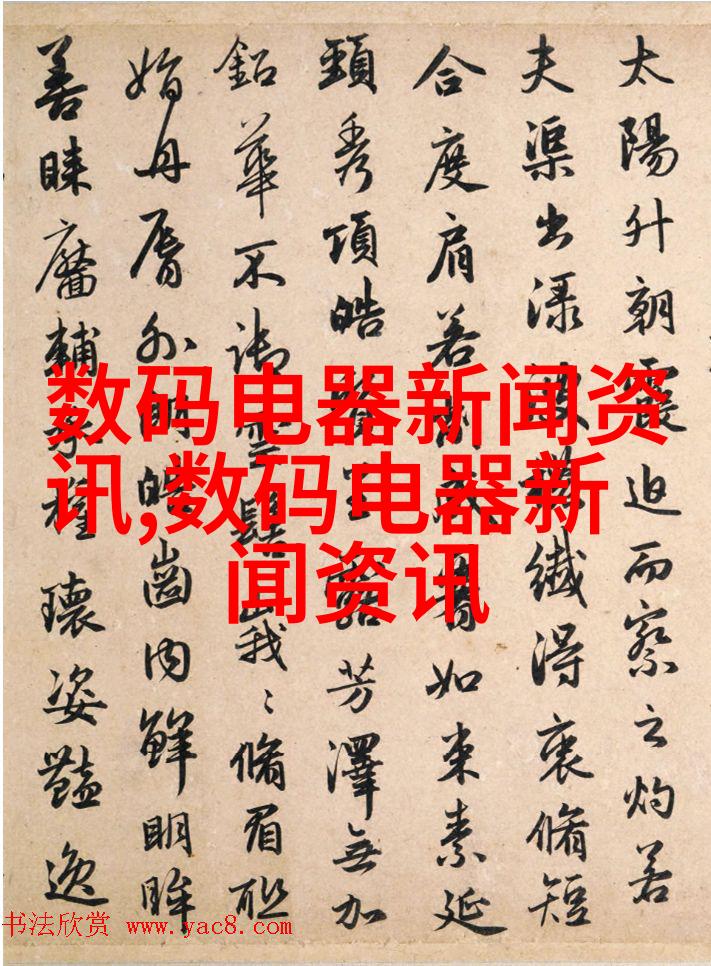 太陽升朝霞迫而察之灼若
夫渠出淥波穠纖得衷脩短
合度肩若削成腰如束素延
頸秀項皓質呈露芳澤無加
鉛華不御雲髻峩〻脩眉聯
娟丹脣外朗皓齒內鮮明眸
善睞靨輔承權瓌姿豔逸
数码电器新闻资
讯,数码电器新
闻资讯
书法欣赏 www.yac8.com